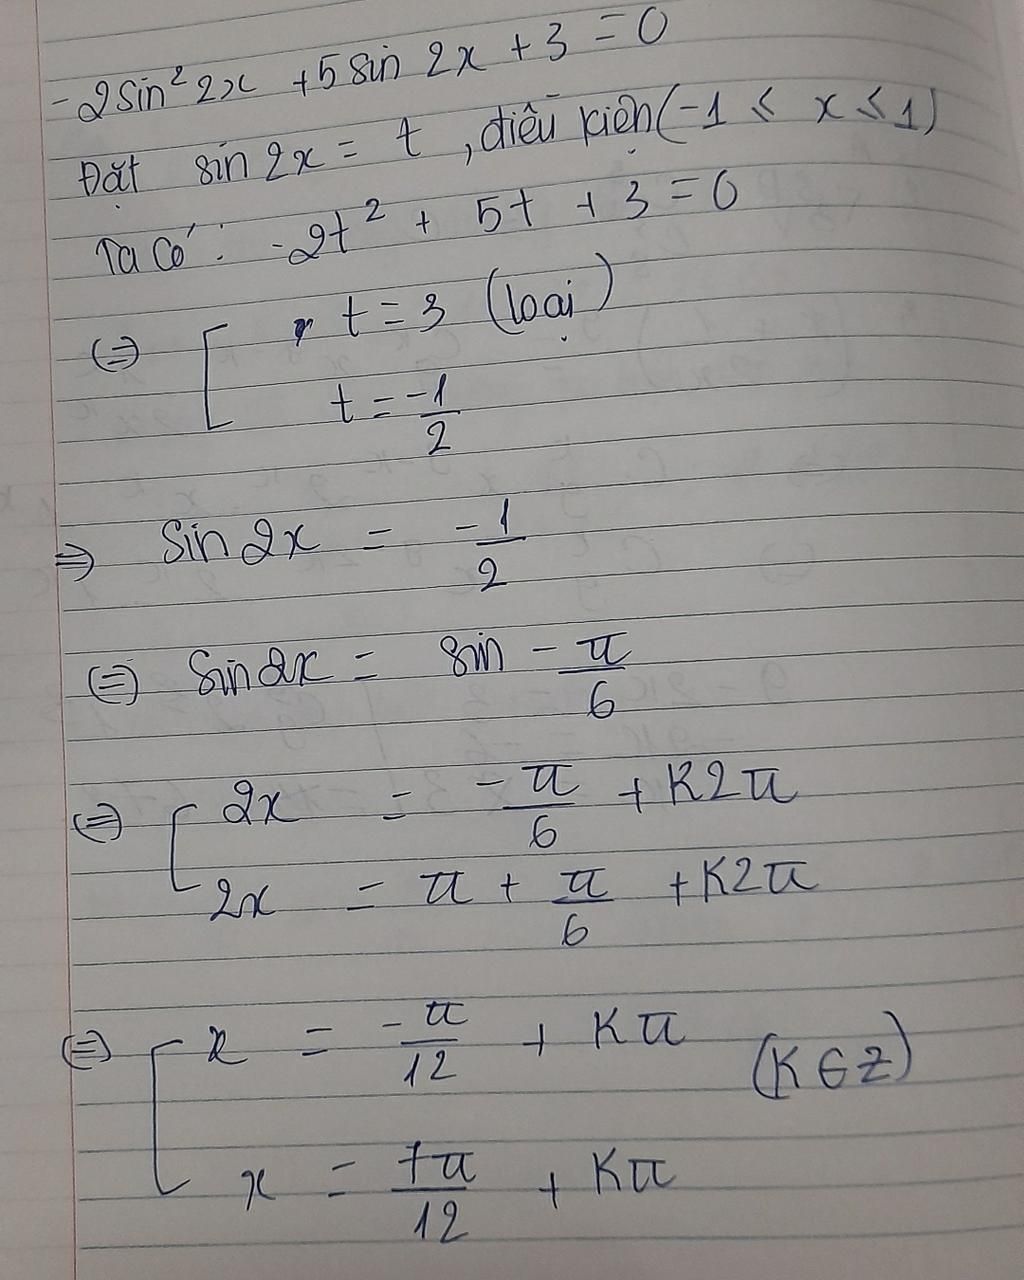 -2sin² 2x + 5 sin 2x + 3 = 0
Đặt sin 2x = t , điều kiện (-1 ≤ x ≤ 1)
Ta có : -2t² + 5t + 3 = 0
(=) [ t = 3 (loại)
t = -1/2
=> Sin 2x = -1/2
(=) Sin 2x = sin - π/6
(=) [ 2x = -π/6 + K2π
2x = π + π/6 + K2π
(=) [ x = -π/12 + Kπ (K ∈ Z)
x = 7π/12 + Kπ